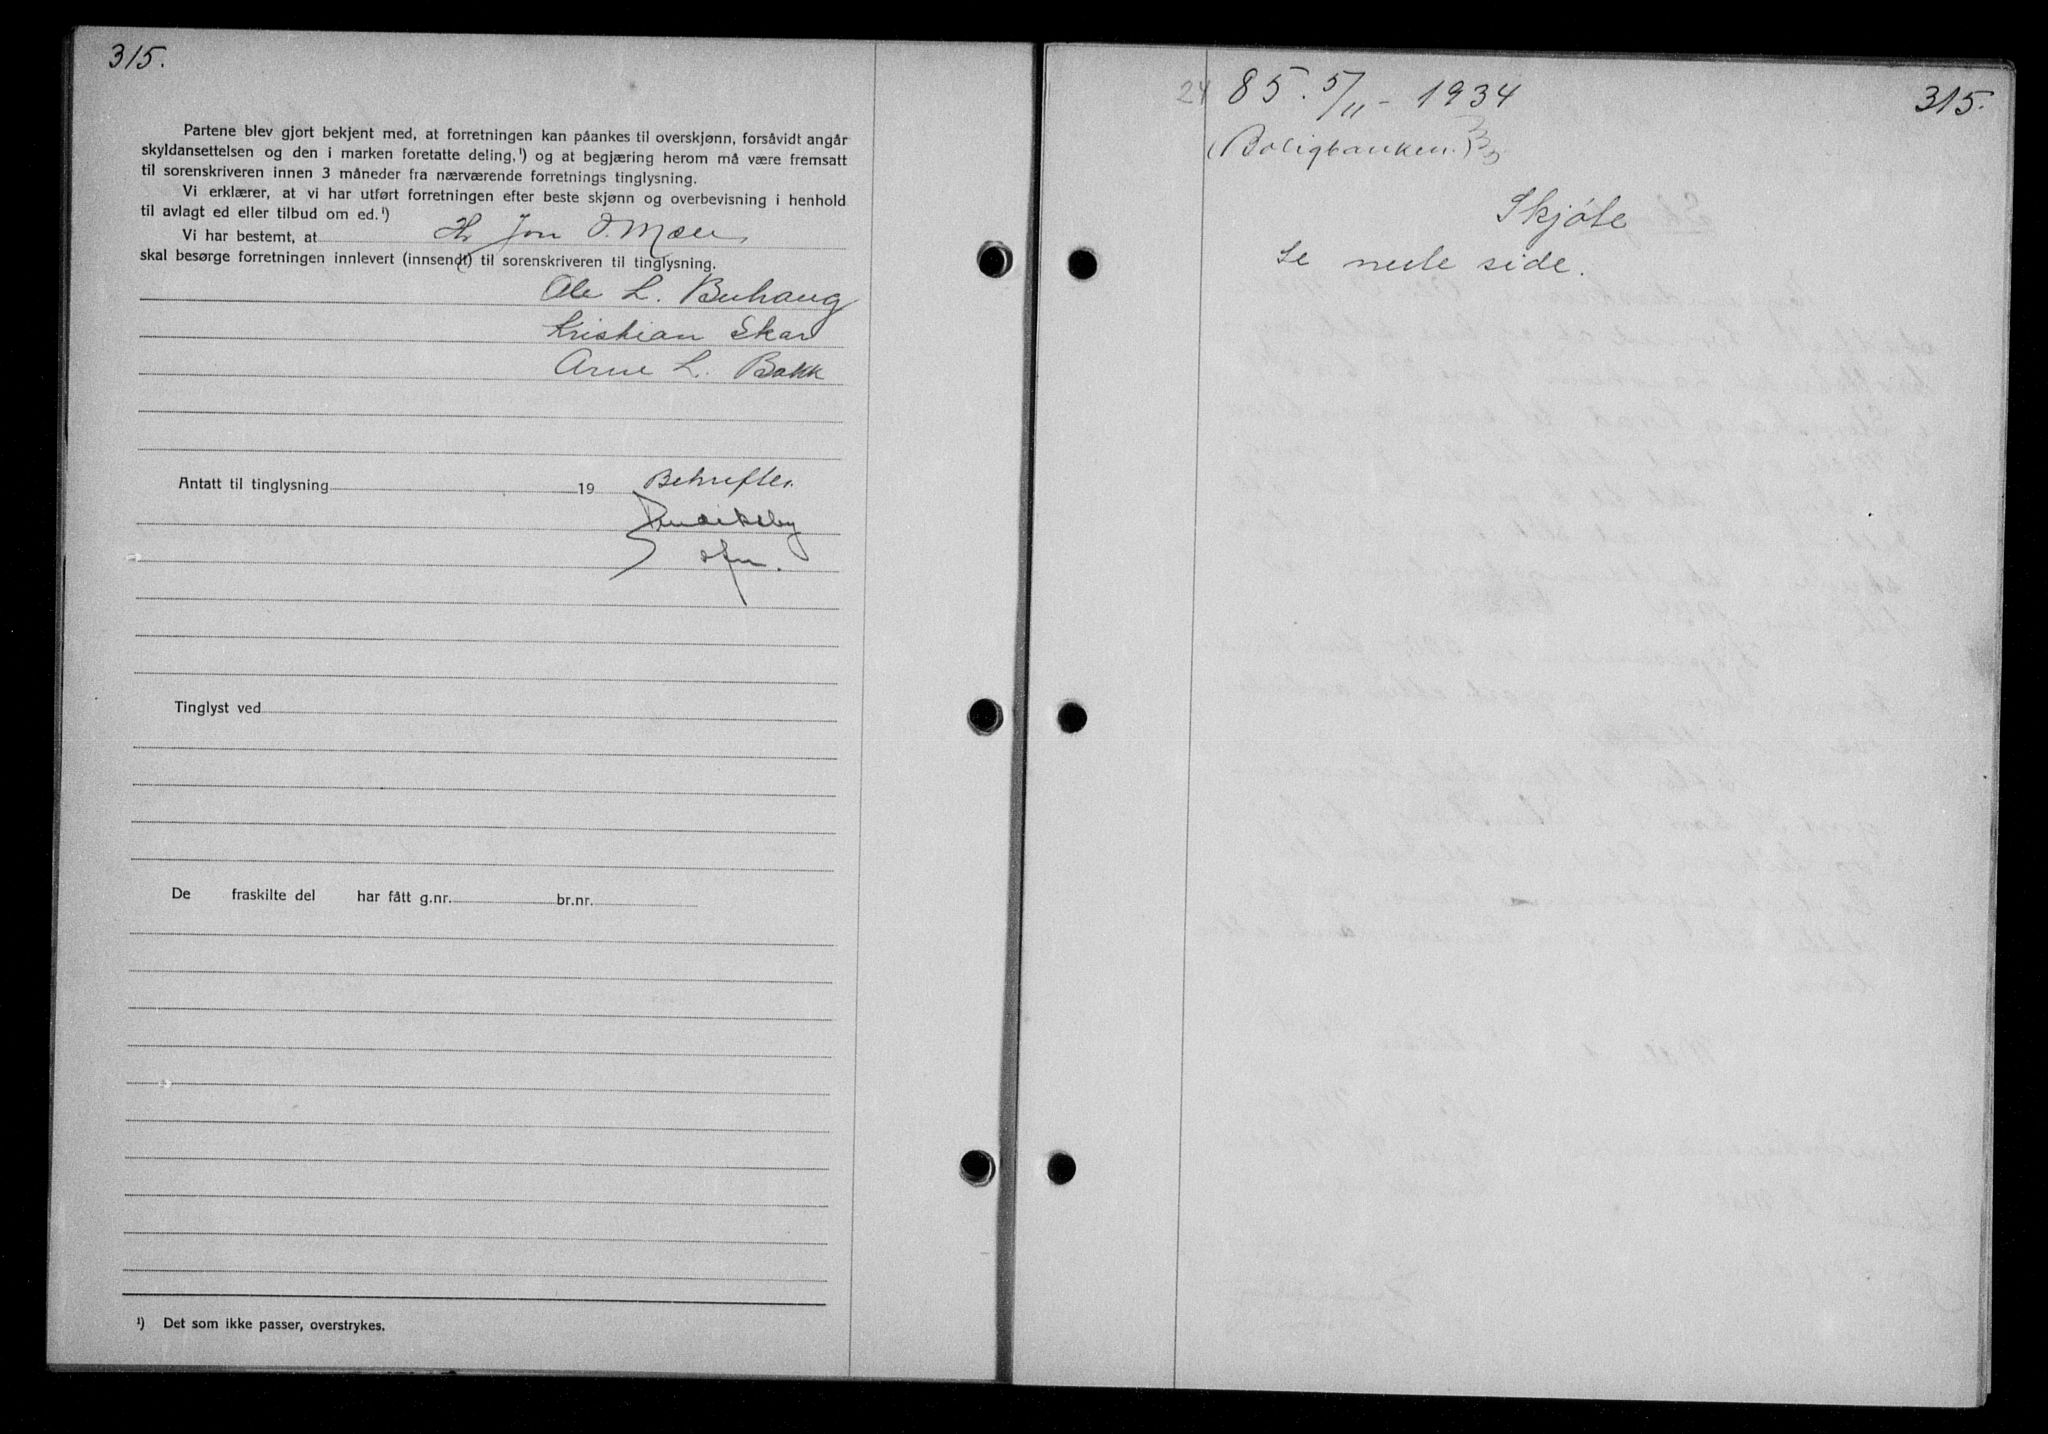 315.
Partene blev gjort bekjent med, at forretningen kan påankes til overskjønn, forsåvidt angår
skyldansettelsen og den i marken foretatte deling,¹) og at begjæring herom må være fremsatt
til sorenskriveren innen 3 måneder fra nærværende forretnings tinglysning.
Vi erklærer, at vi har utført forretningen efter beste skjønn og overbevisning i henhold
til avlagt ed eller tilbud om ed.¹)
Vi har bestemt, at Hr Jon O. Moen
skal besørge forretningen innlevert (innsendt) til sorenskriveren til tinglysning.
Ole L. Buhaug
Kristian Skar
Arne L. Bakk
Antatt til tinglysning 19 Bekreftes
Tinglyst ved
De fraskilte del har fått g.nr. br.nr.
¹) Det som ikke passer, overstrykes.
24 85. 5/11 - 1934 315.
(Boligbanken.)
Skjöte
Se neste side.